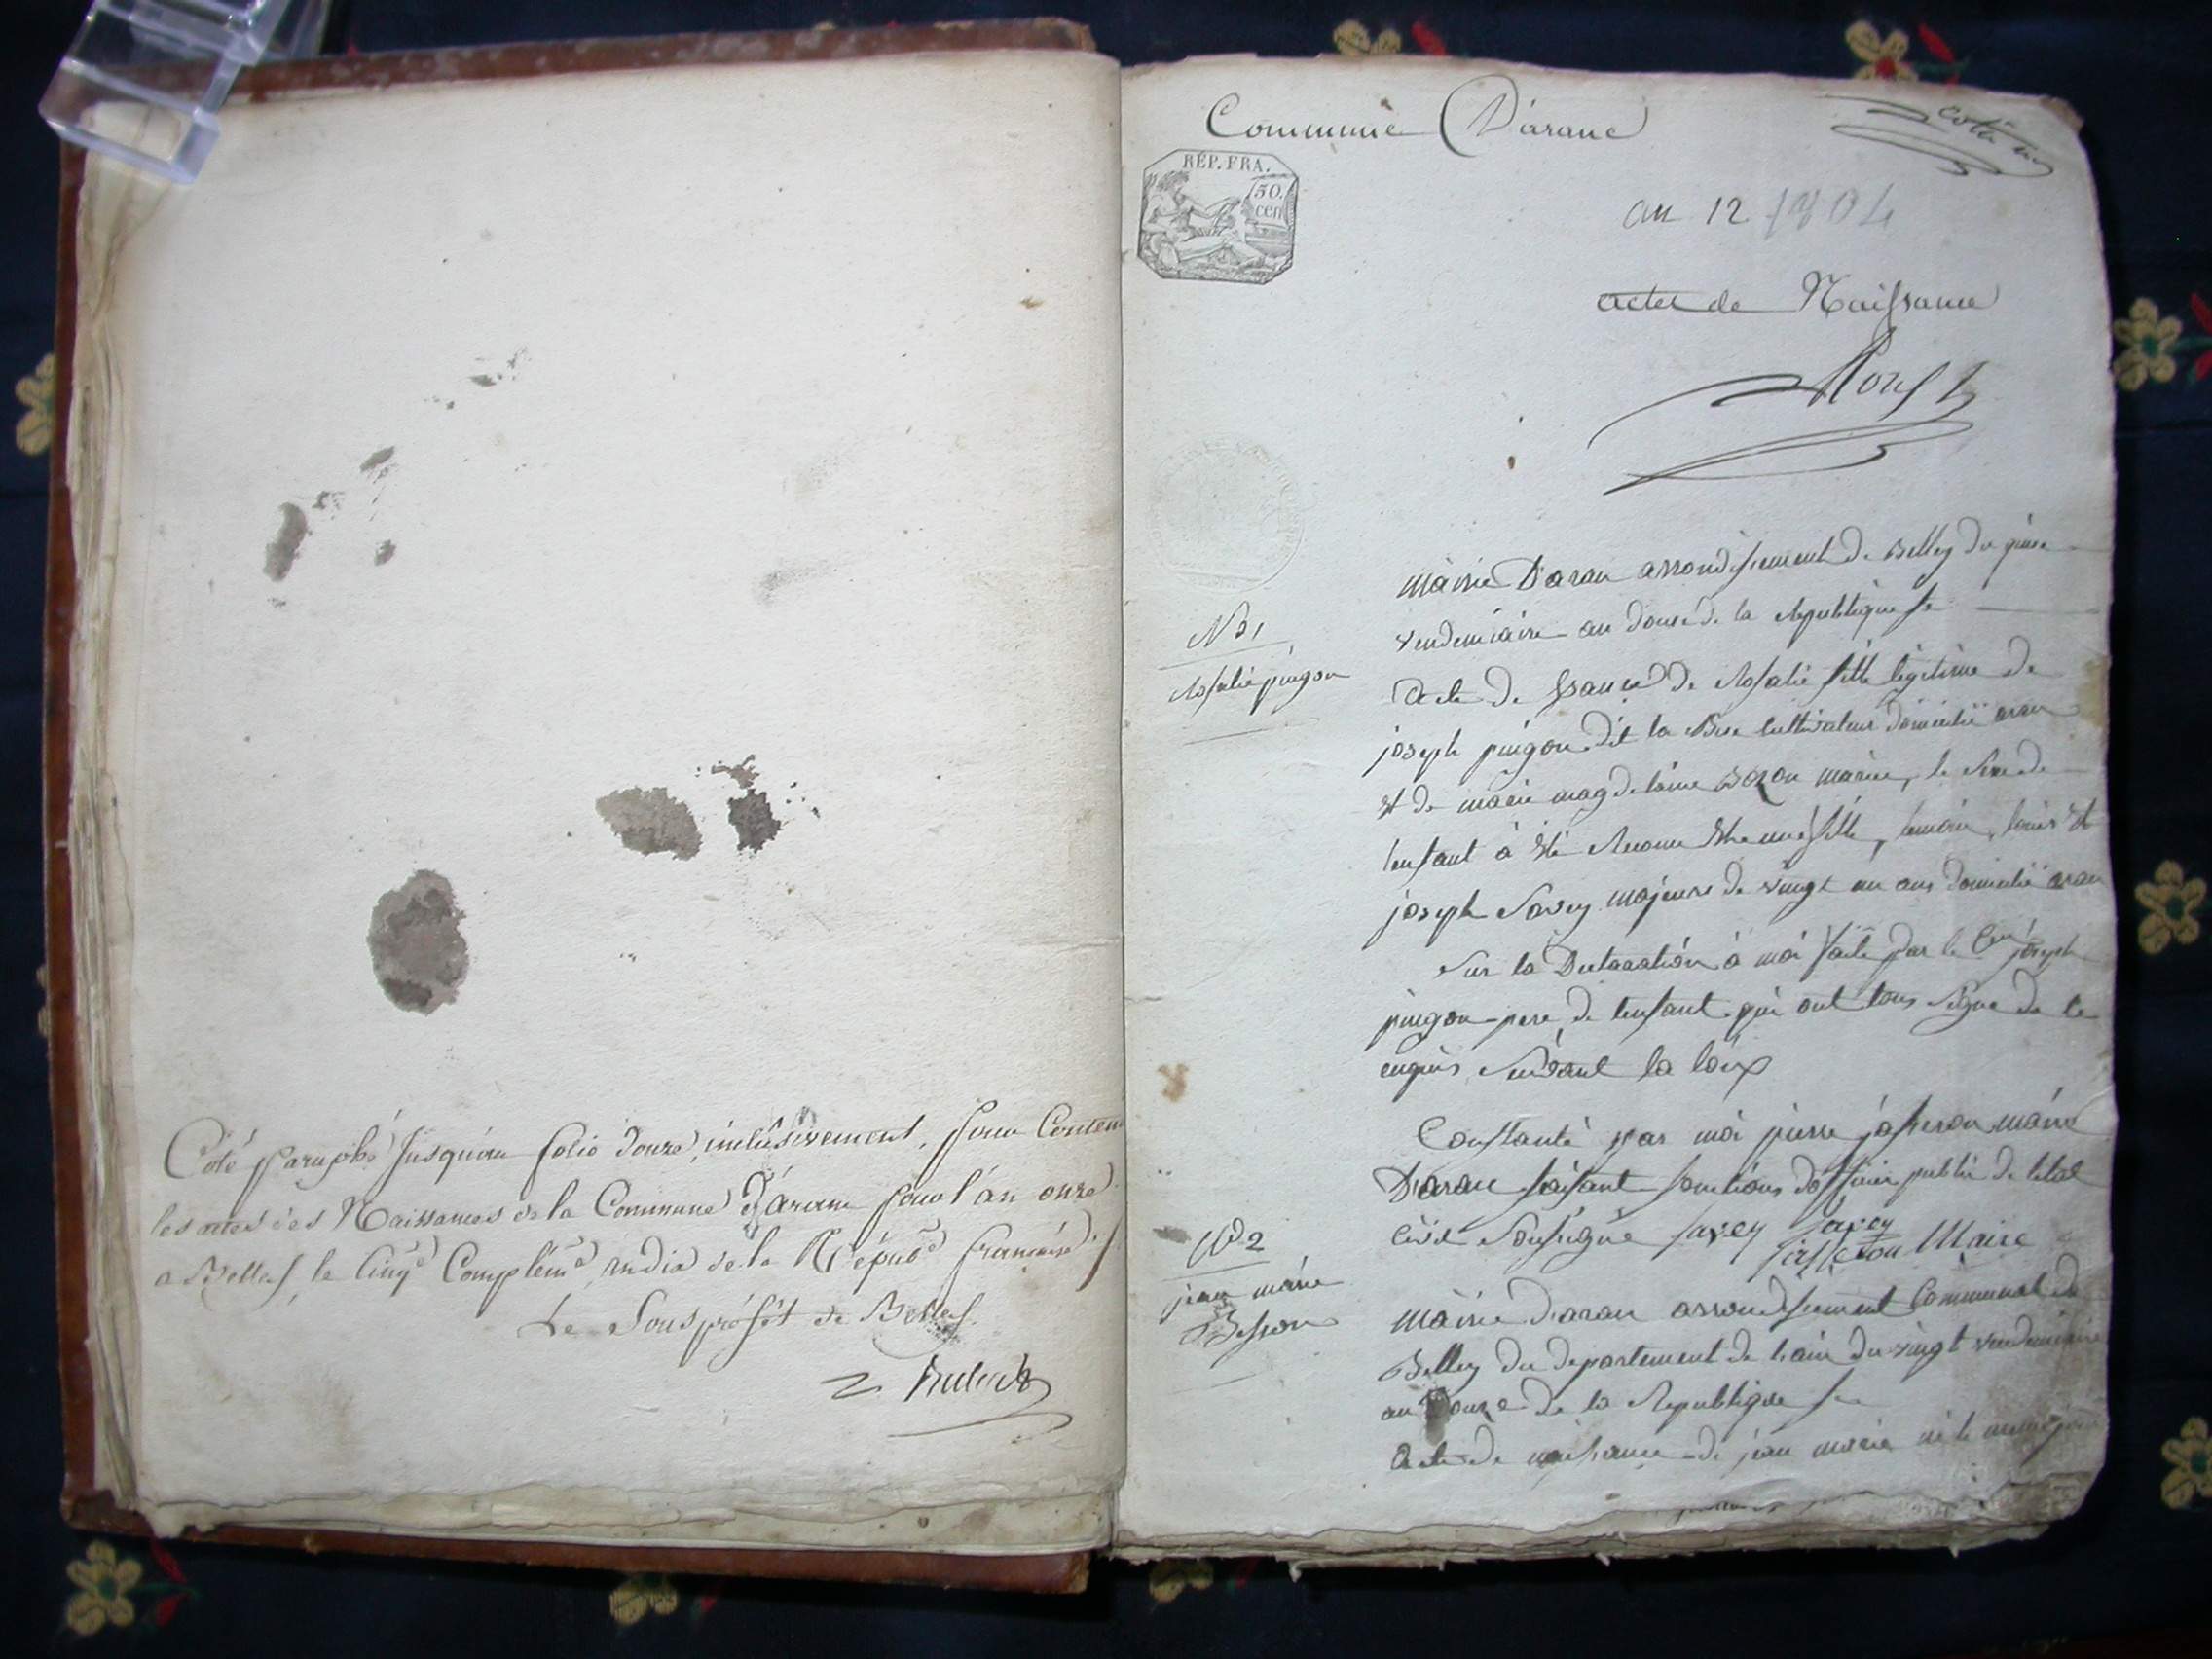 Coté paraphé jusqu'au folio douze, inclusivement, pour Conten
les actes des Naissances de la Commune d'arane pour l'an onze
a Belley, le Cinq.e Complém.e an dix de la Répub.e française
Le Sous préfét de Belley
Commune D'arane
RÉP. FRA.
50. cen
an 12 1804
actes de Naissance
mairie D'aran arrondissement de Belley du
vendemiaire an douze de la Republique fse
N° 1
Rosalie pingon
acte de de Rosalie fille légitime de
joseph pingon dit la cultivateur domicilié aran
et de marie magdelaine Bozon mariée, le sexe de
lenfant à été reconnu être une fille, temoin, louis et
joseph Savey majeurs de vingt un ans domicilié aran
Sur la Declaration à moi faite par le Cen joseph
pingon pere de lenfant qui ont tous signé de ce
enquis suivant la loix
Constaté par moi pierre jasseron maire
Daran faisant fonctions dofficier public de letat
civil Soussigné savey Savey
jasseron Maire
N° 2
jean marie
Besson
Mairie daran arrondissement Communal de
Belley du departement de lain du vingt vendemiaire
an douze de la Republique fse
acte de naissance de jean marie né le